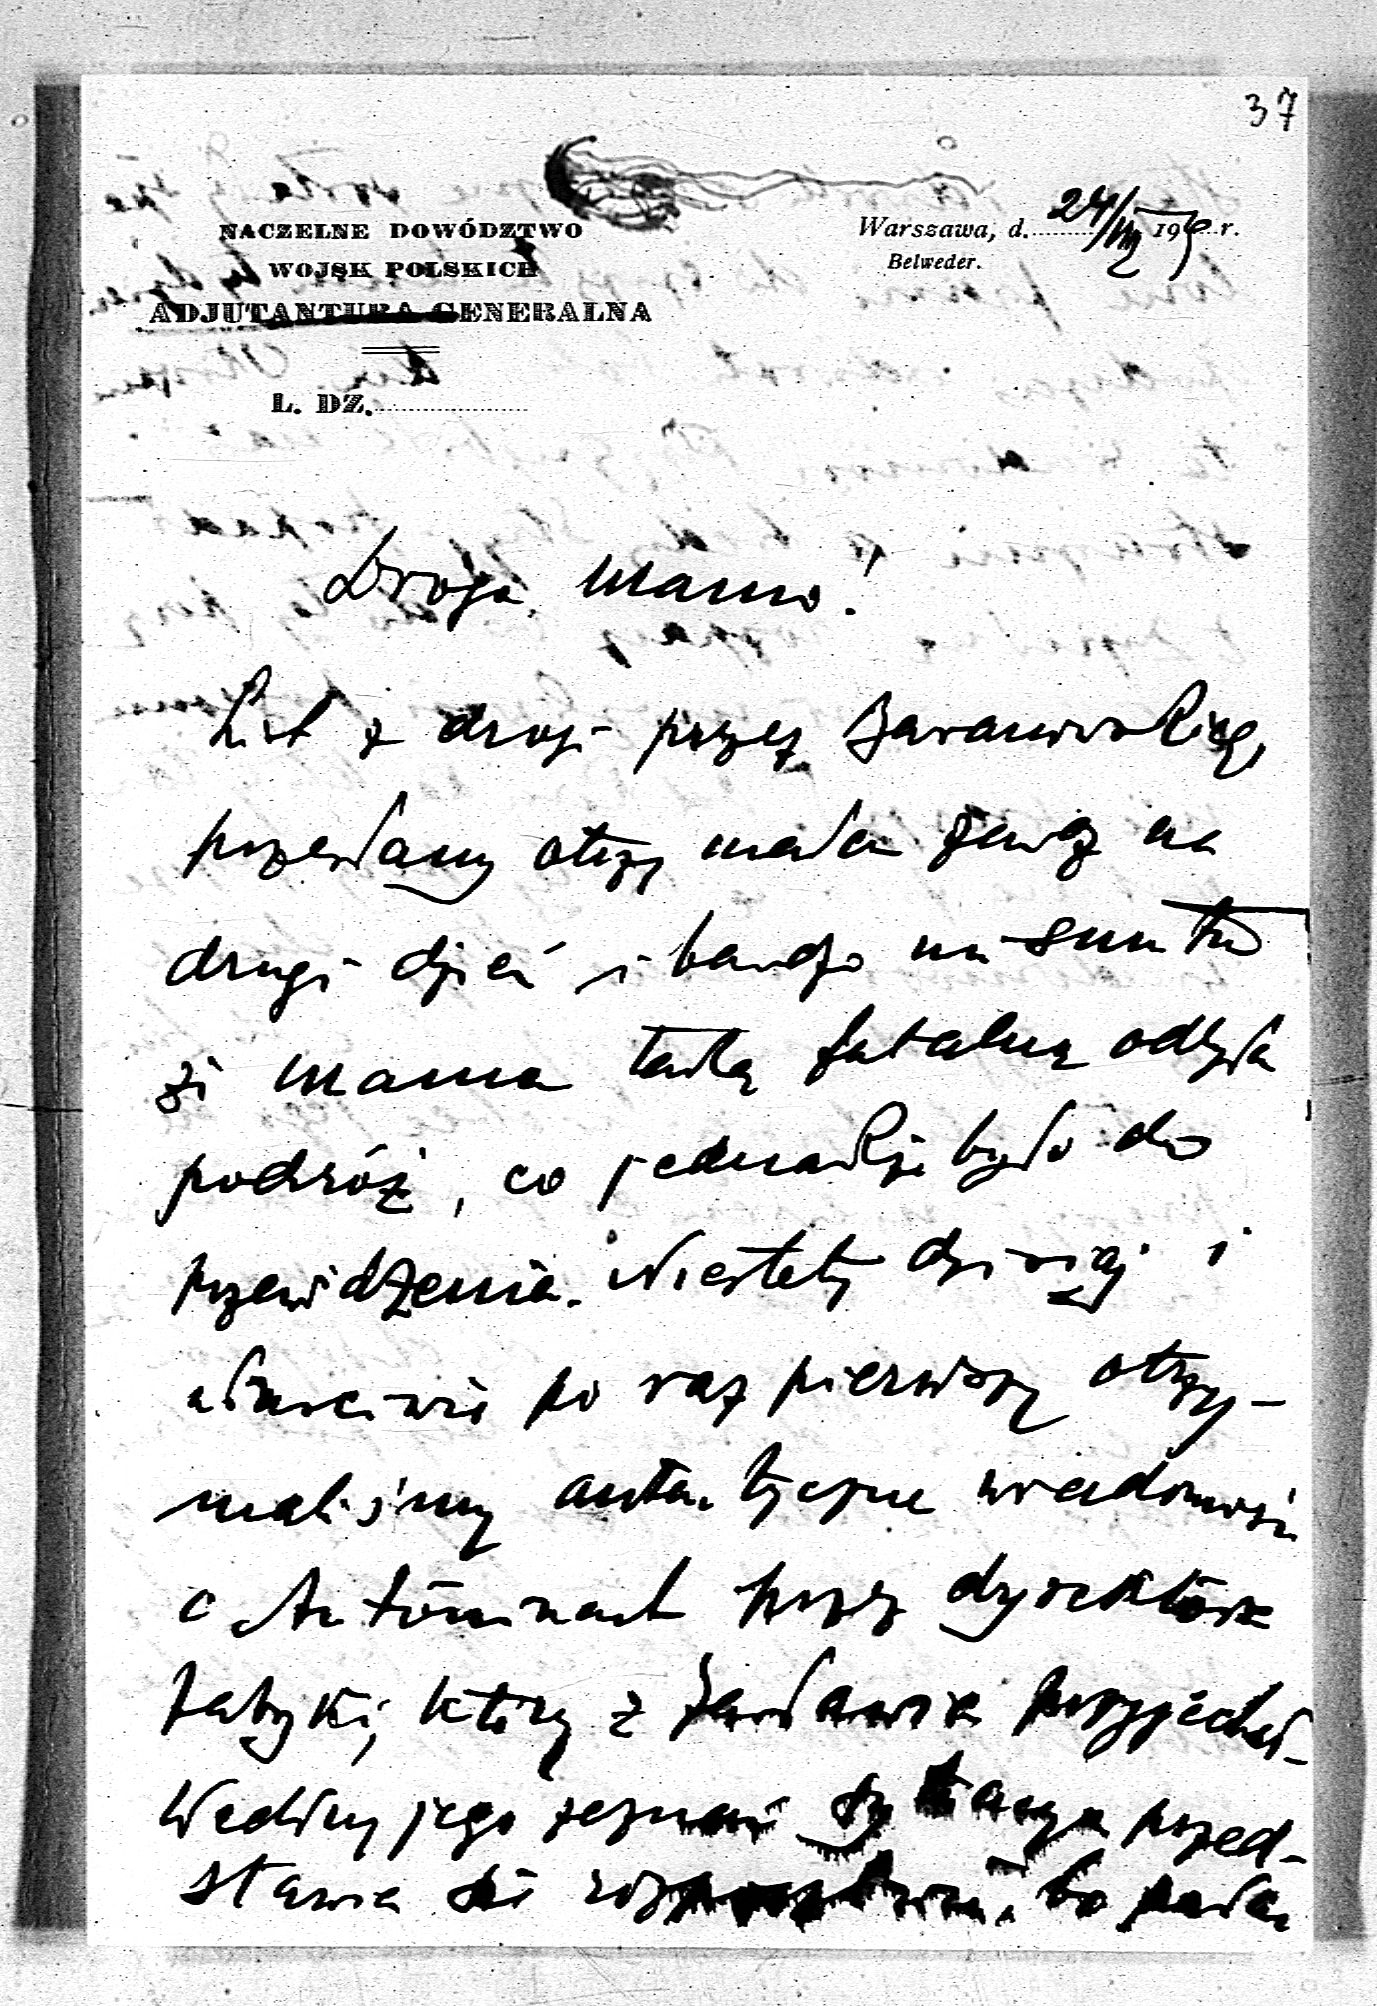 37
NACZELNE DOWÓDZTWO
WOJSK POLSKICH
ADJUTANTURA GENERALNA
L. DZ.
Warszawa, d. 24/VII 19 r.
Belweder.
Droga Mamo!
List z drogi przez Baranowskiego
przesłany otrzymałem zaraz na
drugi dzień i bardzo mi smutno
że Mama taką fatalną odbyła
podróż, co jednakże było do
przewidzenia. Niestety dzisiaj i
właściwie po raz pierwszy otrzy-
maliśmy autentyczne wiadomości
o Antoninach przez dyrektora
fabryki, który z Zasławia przyjechał
Według jego zeznań sytuacja przed-
stawia się rozpaczliwie, bo pałac